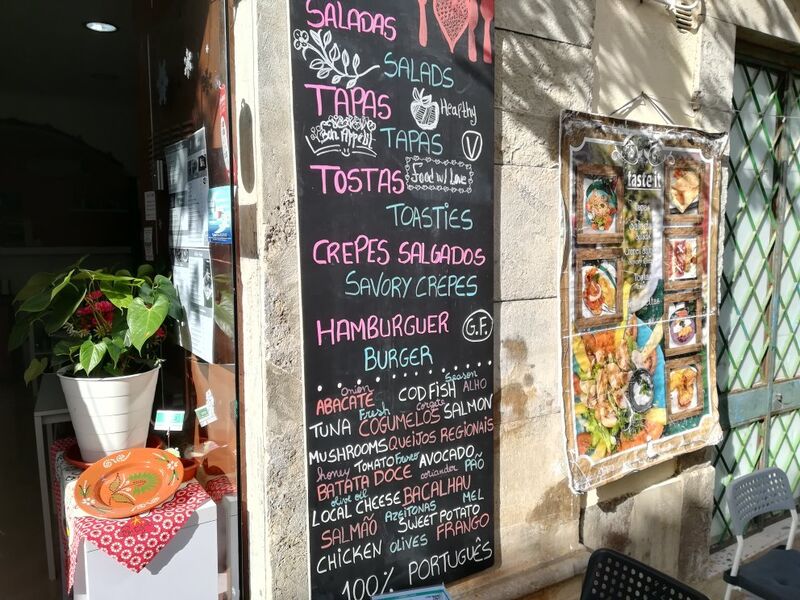 SALADAS
SALADS
TAPAS
Healthy
Bon Appetit
TAPAS
V
TOSTAS
Food w/ Love
TOASTIES
CREPES SALGADOS
SAVORY CREPES
HAMBURGUER
G.F.
BURGER
onion
Season
ABACATE
CODFISH
ALHO
Fresh
TUNA
COGUMELOS
SALMON
MUSHROOMS
QUEIJOS REGIONAIS
honey
TOMATO
AVOCADO
BATATA DOCE
coriander
PÃO
olive oil
LOCAL CHEESE
BACALHAU
AZEITONAS
MEL
SALMÃO
SWEET POTATO
CHICKEN
OLIVES
FRANGO
100% PORTUGUÊS
taste it